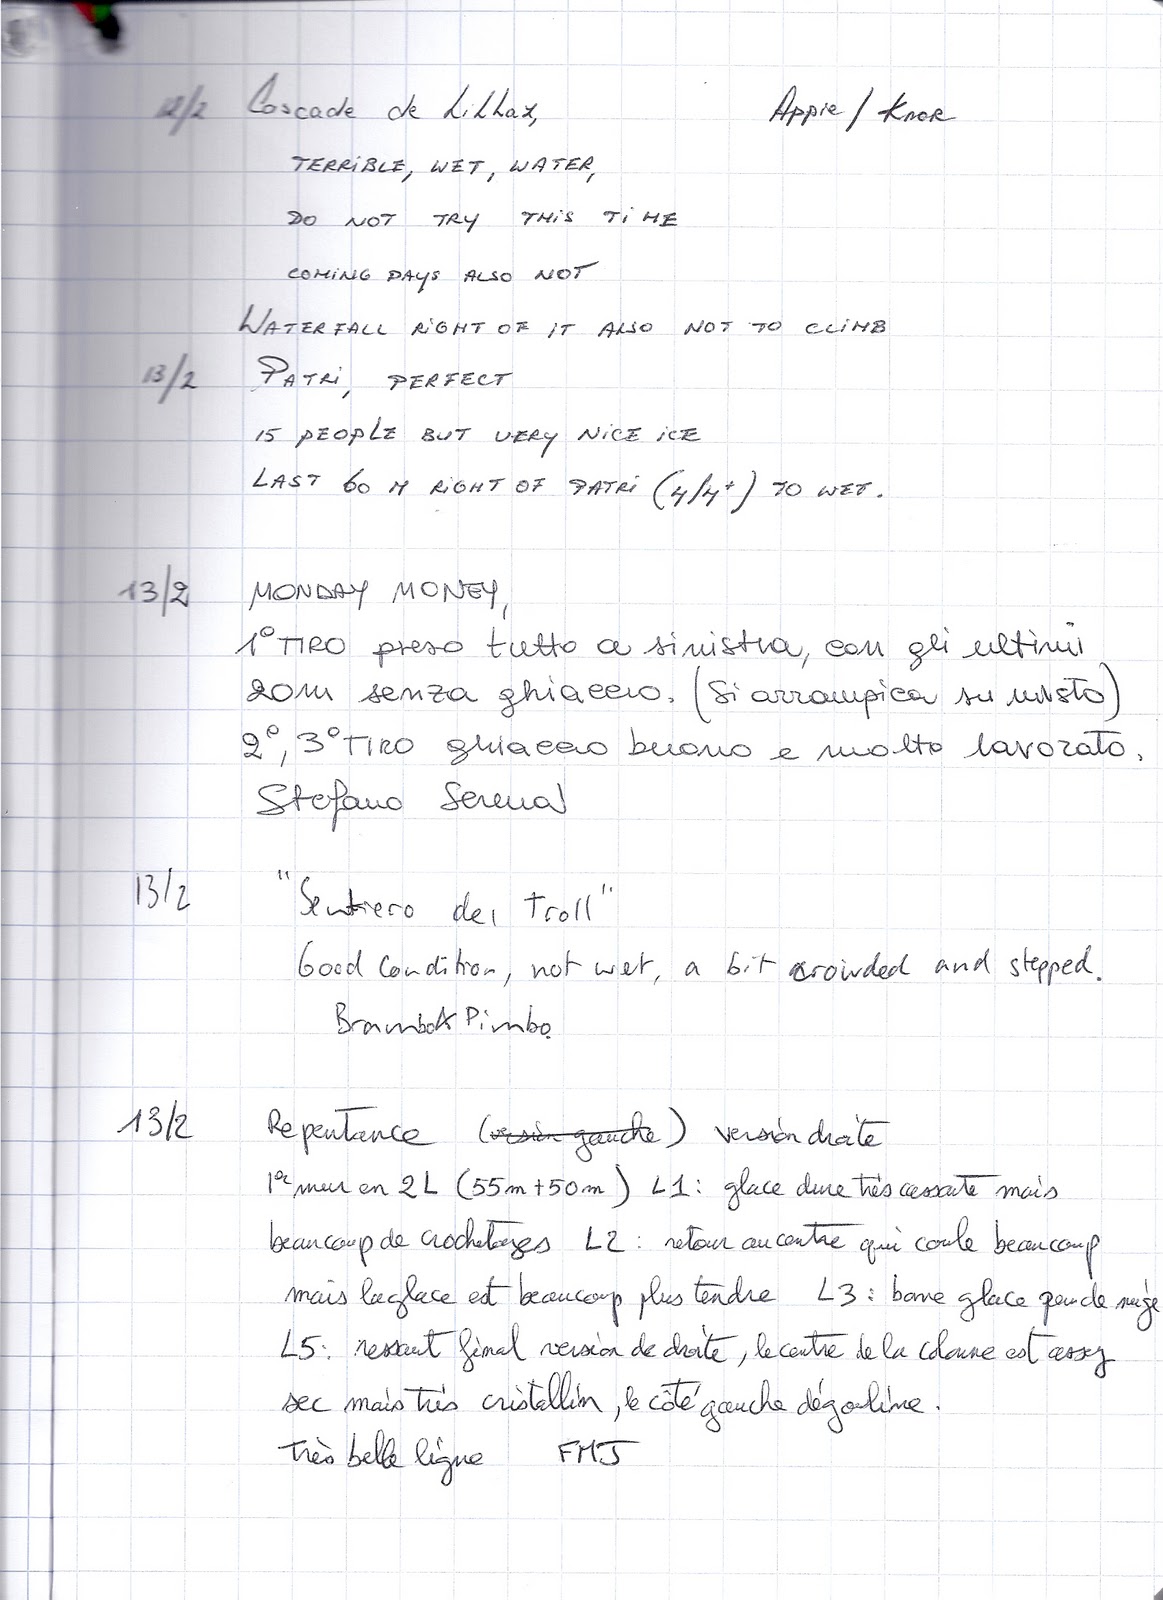 12/2 Cascade de Lillaz, Appie / Knor
TERRIBLE, WET, WATER,
DO NOT TRY THIS TIME
COMING DAYS ALSO NOT
WATERFALL RIGHT OF IT ALSO NOT TO CLIMB
13/2 PATRI, PERFECT
15 PEOPLE BUT VERY NICE ICE
LAST 60 M RIGHT OF PATRI (4/4+) TO WET.
13/2 MONDAY MONEY,
1° TIRO preso tutto a sinistra, con gli ultimi
20m senza ghiaccio. (Si arrampica su misto)
2°, 3° TIRO ghiaccio buono e molto lavorato.
Stefano Serena
13/2 "Sentiero dei Troll"
Good condition, not wet, a bit crowded and stepped.
Bram & Pimbo
13/2 Repentance (version gauche) version droite
1er mur en 2L (55m+50m) L1: glace dure très cassante mais
beaucoup de crochetages L2: retour au centre qui coule beaucoup
mais la glace est beaucoup plus tendre L3: bonne glace peu de neige
L5: ressaut final version de droite, le centre de la colonne est assez
sec mais très cristallin, le côté gauche dégouline.
très belle ligne FMJ